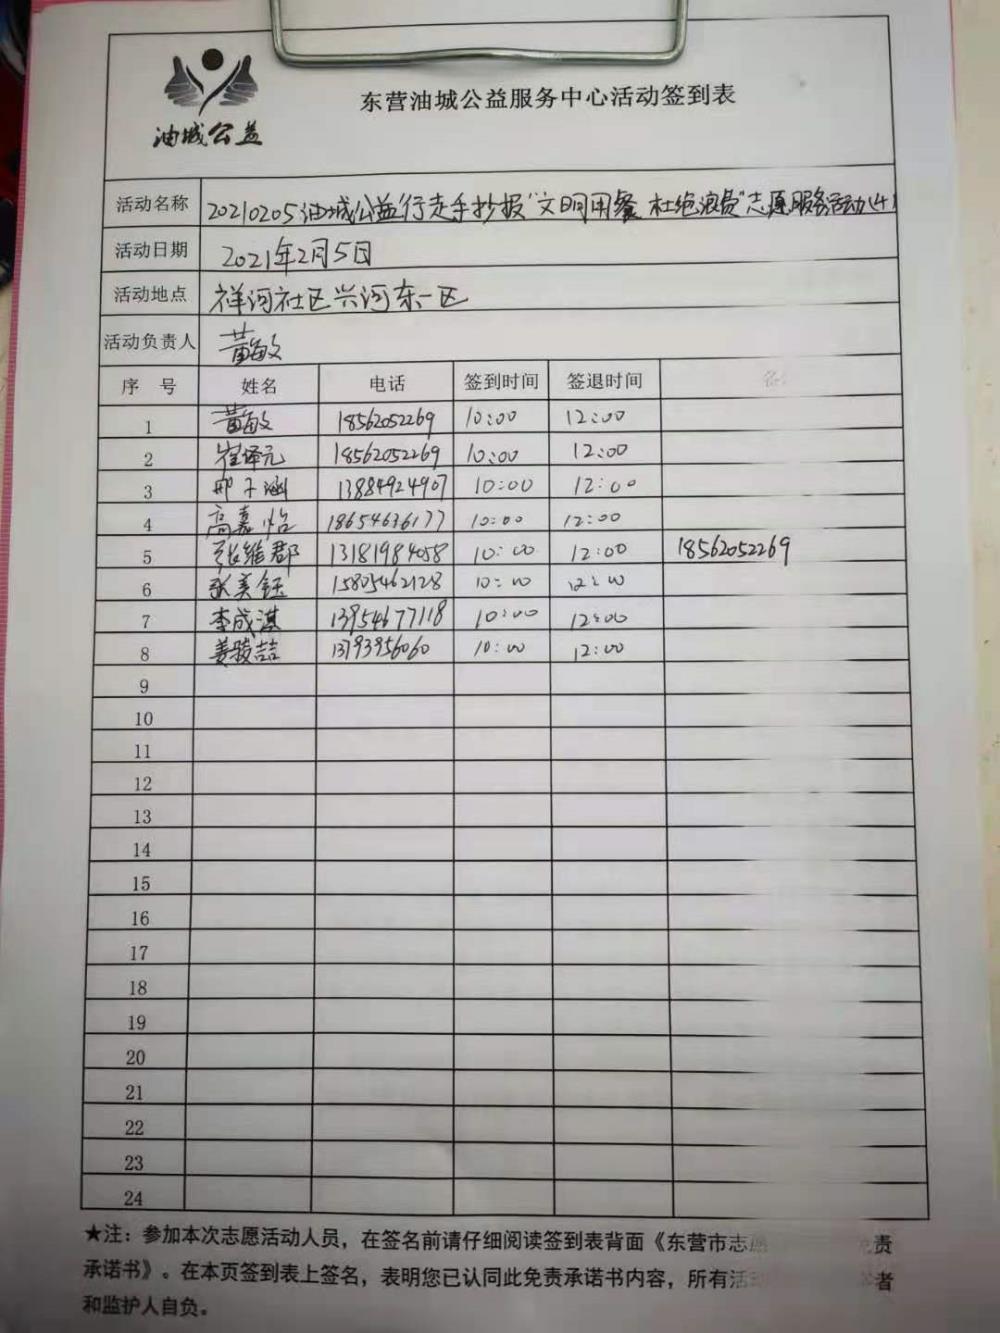 油城公益
东营油城公益服务中心活动签到表
活动名称 20210205油城公益行走手抄报"文明用餐 杜绝浪费"志愿服务活动(4)
活动日期 2021年2月5日
活动地点 祥河社区兴河东一区
活动负责人 黄敏
序 号 姓名 电话 签到时间 签退时间
1 黄敏 18562052269 10:00 12:00
2 崔译元 18562052269 10:00 12:00
3 邢子涵 13884924907 10:00 12:00
4 高嘉怡 18654636177 10:00 12:00
5 张维郡 13181984058 10:00 12:00 18562052269
6 张美钰 15805462128 10:00 12:00
7 李成淇 13954677118 10:00 12:00
8 姜骏喆 13793956060 10:00 12:00
9
10
11
12
13
14
15
16
17
18
19
20
21
22
23
24
★注：参加本次志愿活动人员，在签名前请仔细阅读签到表背面《东营市志愿 责
承诺书》。在本页签到表上签名，表明您已认同此免责承诺书内容，所有活 者
和监护人自负。